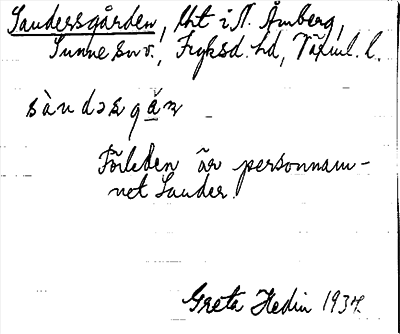 Saudersgården, lht i N. Åmberg,
Sunne snv., Fryksd. hd, Värml. l.
sàndəʂgáɳ
Förleden är personnam-
net Sander.
Greta Hedin 1937.